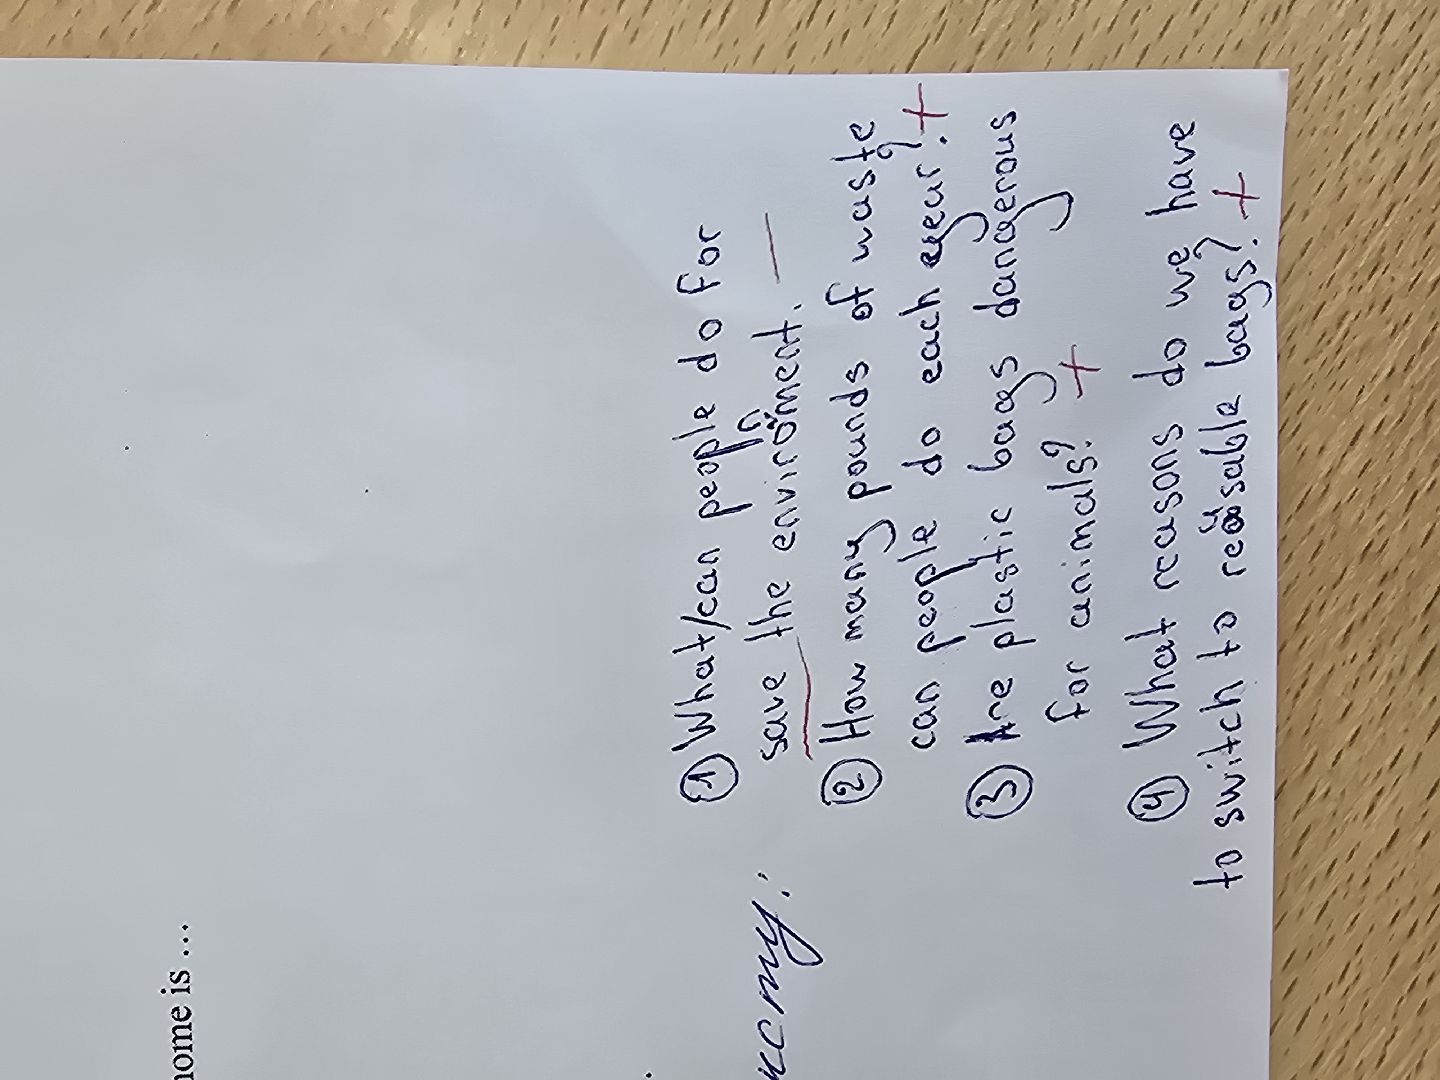 home is ...
ксту:
① What/can people do for
save the environment. —
② How many pounds of waste
can people do each year? +
③ Are plastic bags dangerous
for animals? +
④ What reasons do we have
to switch to reusable bags? +